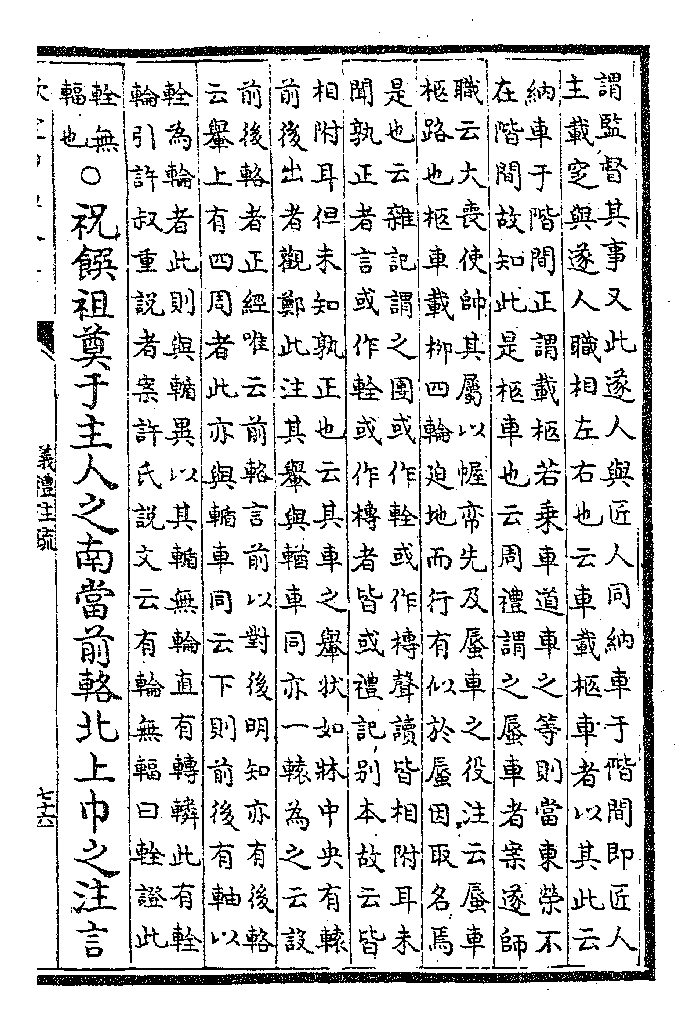 謂監督其事又此遂人與匠人同納車于階間即匠人
主載窆與遂人職相左右也云車載柩車者以其此云
納車于階間正謂載柩若乘車道車之等則當東榮不
在階間故知此是柩車也云周禮謂之蜃車者案遂師
職云大喪使帥其屬以幄帟先及蜃車之役注云蜃車
柩路也柩車載柳四輪迫地而行有似於蜃因取名焉
是也云雜記謂之團或作輇或作槫聲讀皆相附耳未
聞孰正者言或作輇或作槫者皆或禮記别本故云皆
相附耳但未知孰正也云其車之轝狀如牀中央有轅
前後出者觀鄭此注其轝與輴車同亦一轅為之云設
前後輅者正經唯云前輅言前以對後明知亦有後輅
云轝上有四周者此亦與輴車同云下則前後有軸以
輇為輪者此則與輴異以其輴無輪直有轉轔此有輇
輪引許叔重説者案許氏説文云有輪無輻曰輇證此
輇無
輻也
○祝饌祖奠于主人之南當前輅北上巾之注言
儀禮注疏
七十六